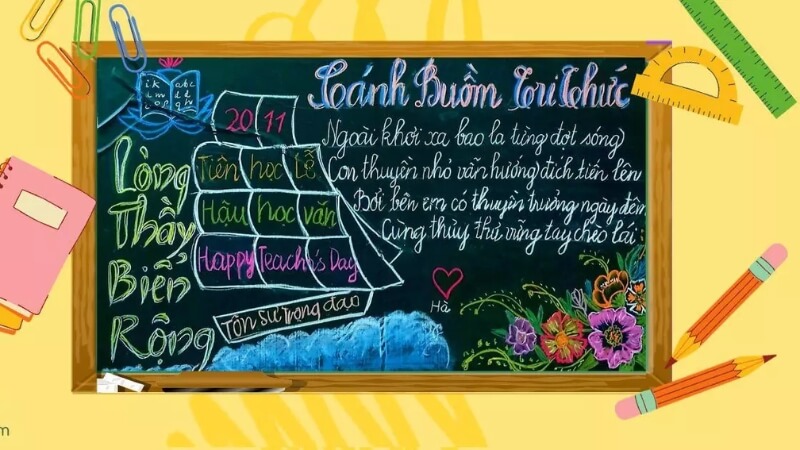 Cánh Buồm Tri Thức
20 11
Tiên học lễ
Hậu học văn
Happy Teacher's Day
Tôn sư trọng đạo
Lòng
Thầy
Biển
Rộng
Ngoài khơi xa bao la từng đợt sóng
Con thuyền nhỏ vẫn hướng đích tiến lên
Bởi bên em có thuyền trưởng ngày đêm
Cùng thủy thủ vững tay chèo lái
Hà